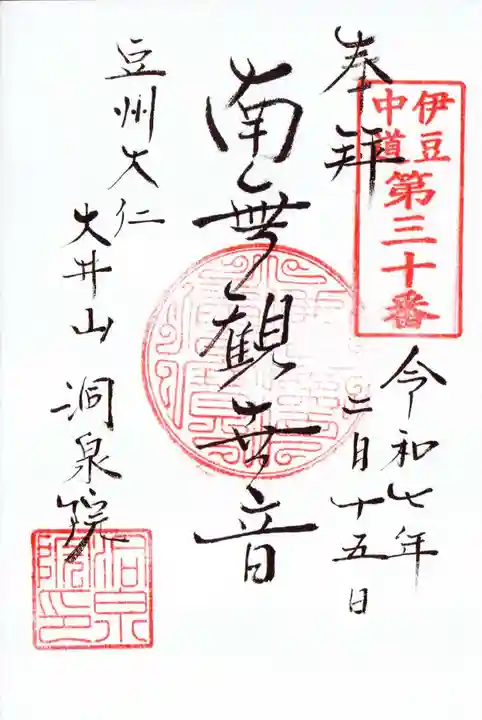 奉拝
伊豆
中道
第三十番
令和七年
二月十五日
南無観世音
豆州大仁
大井山 洞泉院
洞泉院印